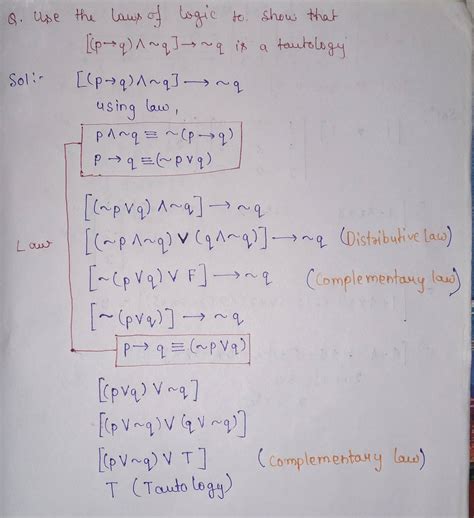 Q. Use the laws of logic to show that
[(p→q)∧~q]→~q is a tautology
Sol:- [(p→q)∧~q]→~q
using law,
p∧~q ≡ ~(p→q)
p→q ≡ (~p∨q)
[(~p∨q)∧~q]→~q
Law [(~p∧~q)∨(q∧~q)]→~q (Distributive law)
[~(p∨q)∨F]→~q (Complementary law)
[~(p∨q)]→~q
p→q ≡ (~p∨q)
[(p∨q)∨~q]
[(p∨~q)∨(q∨~q)]
[(p∨~q)∨T] (Complementary law)
T (Tautology)